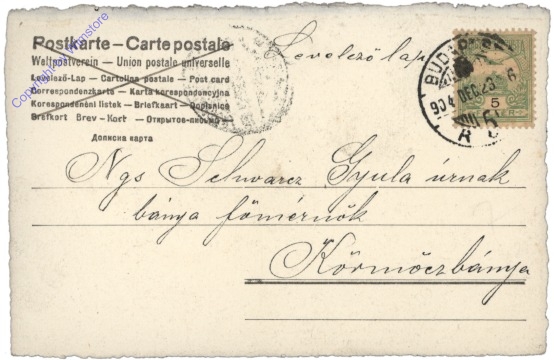 Postkarte – Carte postale
Weltpostverein – Union postale universelle
Levelező-Lap – Cartolina postale – Post card
Correspondenzkarte – Karta korespondencyjna
Korespondenční lístek – Briefkaart – Dopisnica
Brefkort Brev-Kort – Открытое письмо
Дописна карта
Levelező lap
BUDAPEST
904 DEC 23
5
Ngs Schwarcz Gyula úrnak
bánya főmérnök
Körmöczbánya